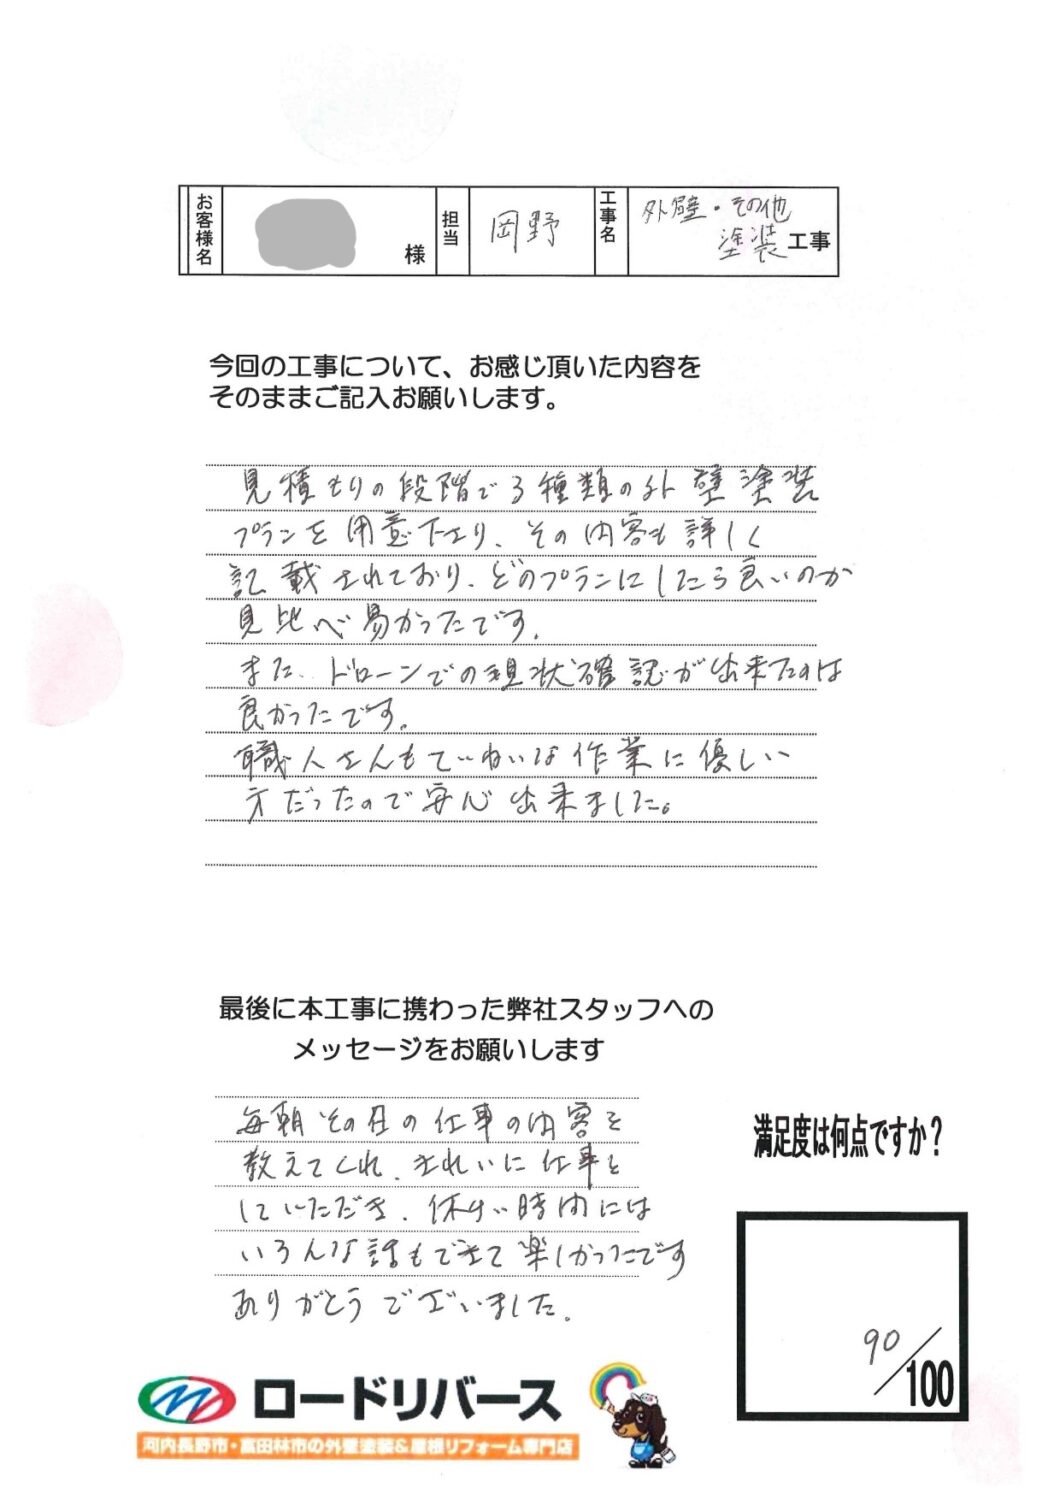 お客様名 様 担当 岡野 工事名 外壁・その他
塗装 工事
今回の工事について、お感じ頂いた内容を
そのままご記入お願いします。
見積もりの段階で3種類の外壁塗装
プランを用意下さり、その内容も詳しく
記載されており、どのプランにしたら良いのか
見比べ易かったです。
また、ドローンでの現状確認が出来たのは
良かったです。
職人さんもていねいな作業に優しい
方だったので安心出来ました。
最後に本工事に携わった弊社スタッフへの
メッセージをお願いします
毎朝その日の仕事の内容を
教えてくれ、きれいに仕事を
していただき、休けい時間には
いろんな話もできて楽しかったです
ありがとうございました。
満足度は何点ですか？
90/100
ロードリバース
河内長野市・富田林市の外壁塗装&屋根リフォーム専門店